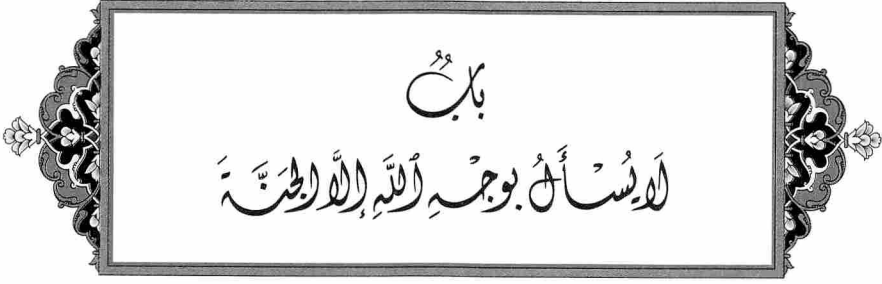 بَابٌ
لَا يُسْأَلُ بِوَجْهِ ٱللَّهِ إِلَّا الجَنَّةَ